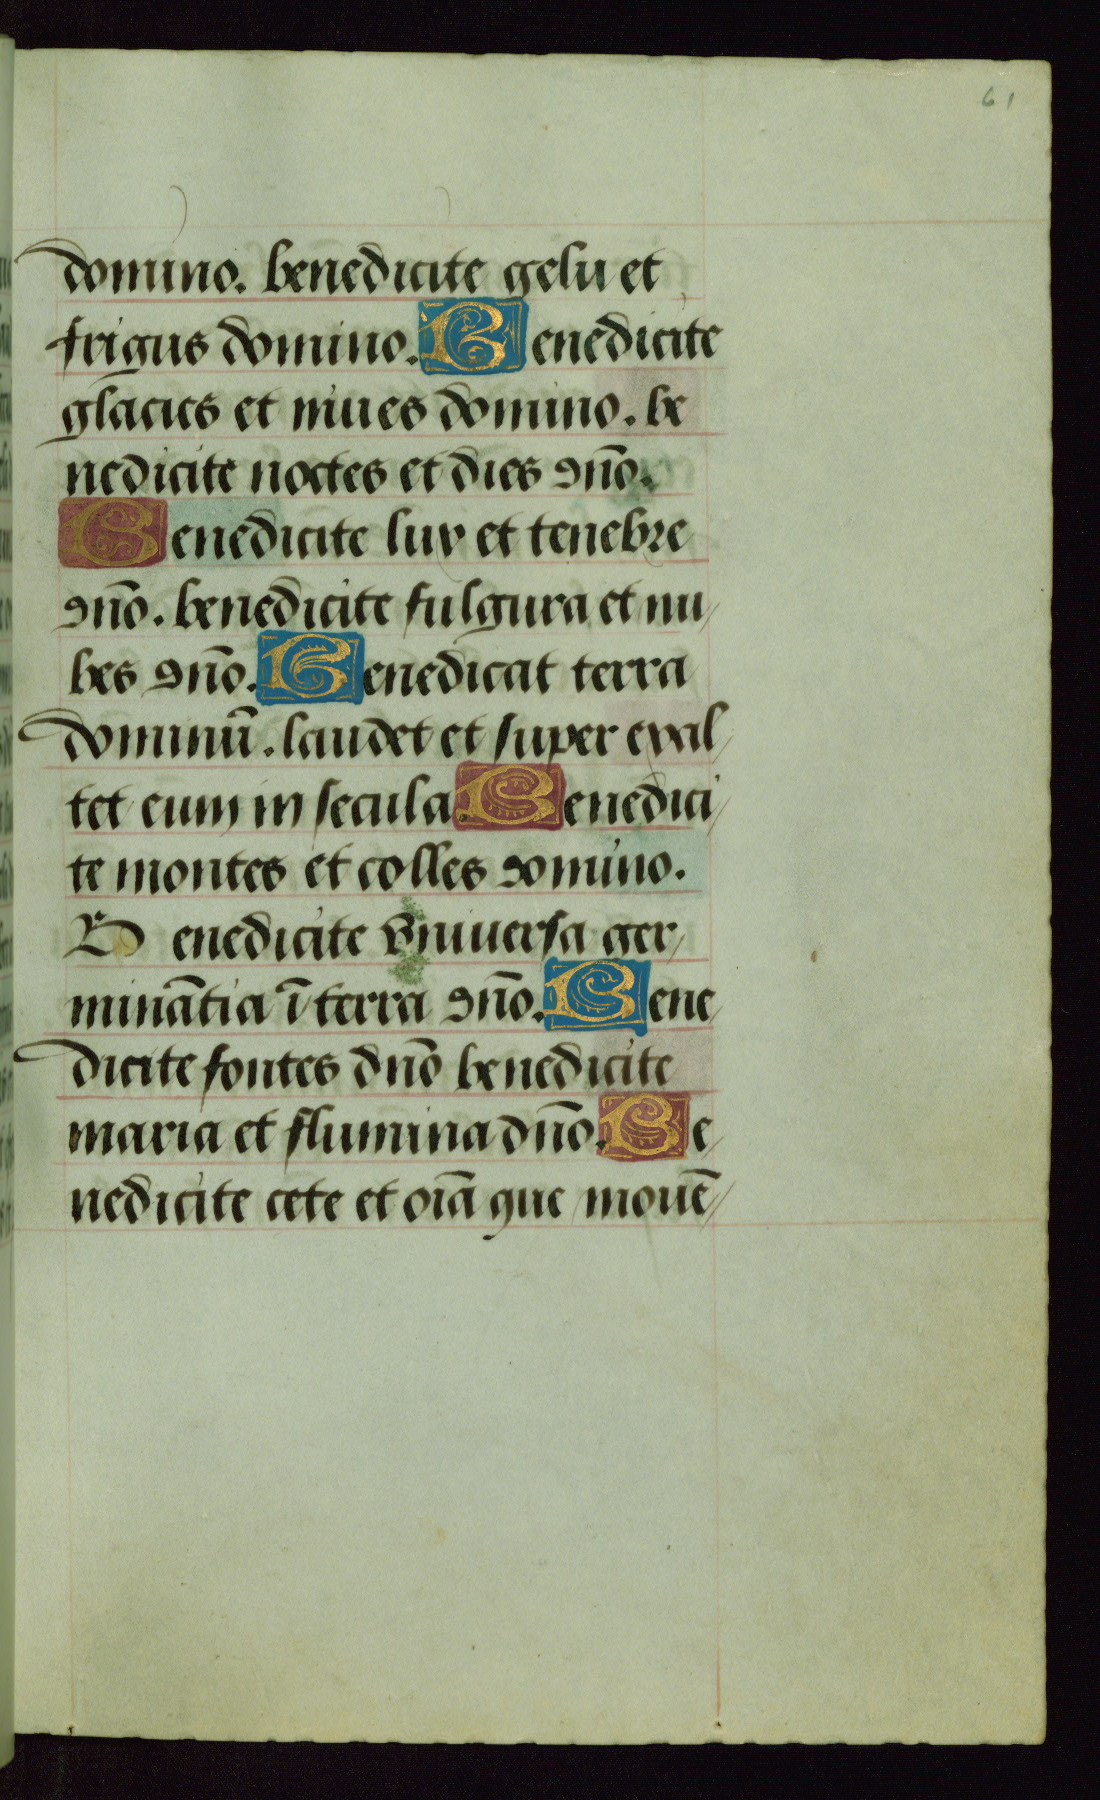 61
domino. benedicite gelu et
frigus domino. Benedicite
glacies et niues domino. be
nedicite noctes et dies dn̄o.
Benedicite lux et tenebre
dn̄o. benedicite fulgura et nu/
bes dn̄o. Benedicat terra
dominū. laudet et super exal/
tet eum in secula. Benedici/
te montes et colles domino.
B enedicite vniuersa ger/
minātia ī terra dn̄o. Bene/
dicite fontes dn̄o benedicite
maria et flumina dn̄o. Be/
nedicite cete et oīa que mouē/